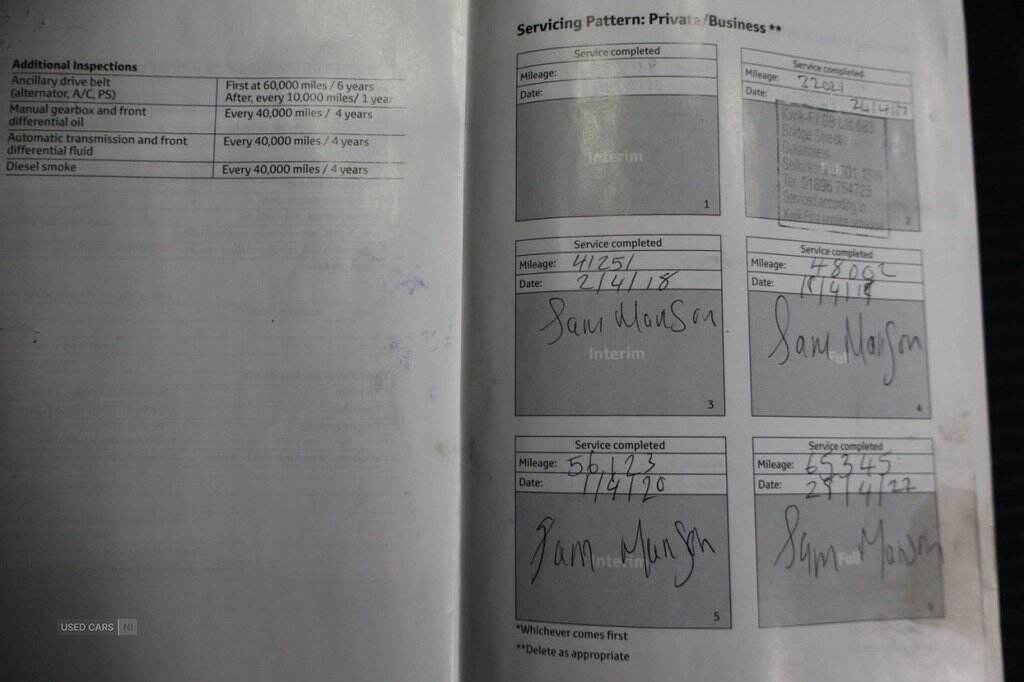 Additional Inspections
Ancillary drive belt (alternator, A/C, PS)
First at 60,000 miles / 6 years
After, every 10,000 miles/ 1 year
Manual gearbox and front differential oil
Every 40,000 miles / 4 years
Automatic transmission and front differential fluid
Every 40,000 miles / 4 years
Diesel smoke
Every 40,000 miles / 4 years
USED CARS NI
Servicing Pattern: Private/Business **
Service completed
Mileage:
Date:
Interim
1
Service completed
Mileage: 32021
Date: 24/4/17
Kwik-Fit GB Ltd
Bridge Street
Galashiels
TD1
Tel: 01896 754725
Serviced according to
Kwik-Fit's service
2
Service completed
Mileage: 41251
Date: 2/4/18
Sam Manson
Interim
3
Service completed
Mileage: 48002
Date:
Sam Manson
Full
4
Service completed
Mileage: 56,123
Date: 1/4/20
Sam Manson
Interim
5
Service completed
Mileage: 65345
Date: 29/4/22
Sam Manson
Full
6
*Whichever comes first
**Delete as appropriate